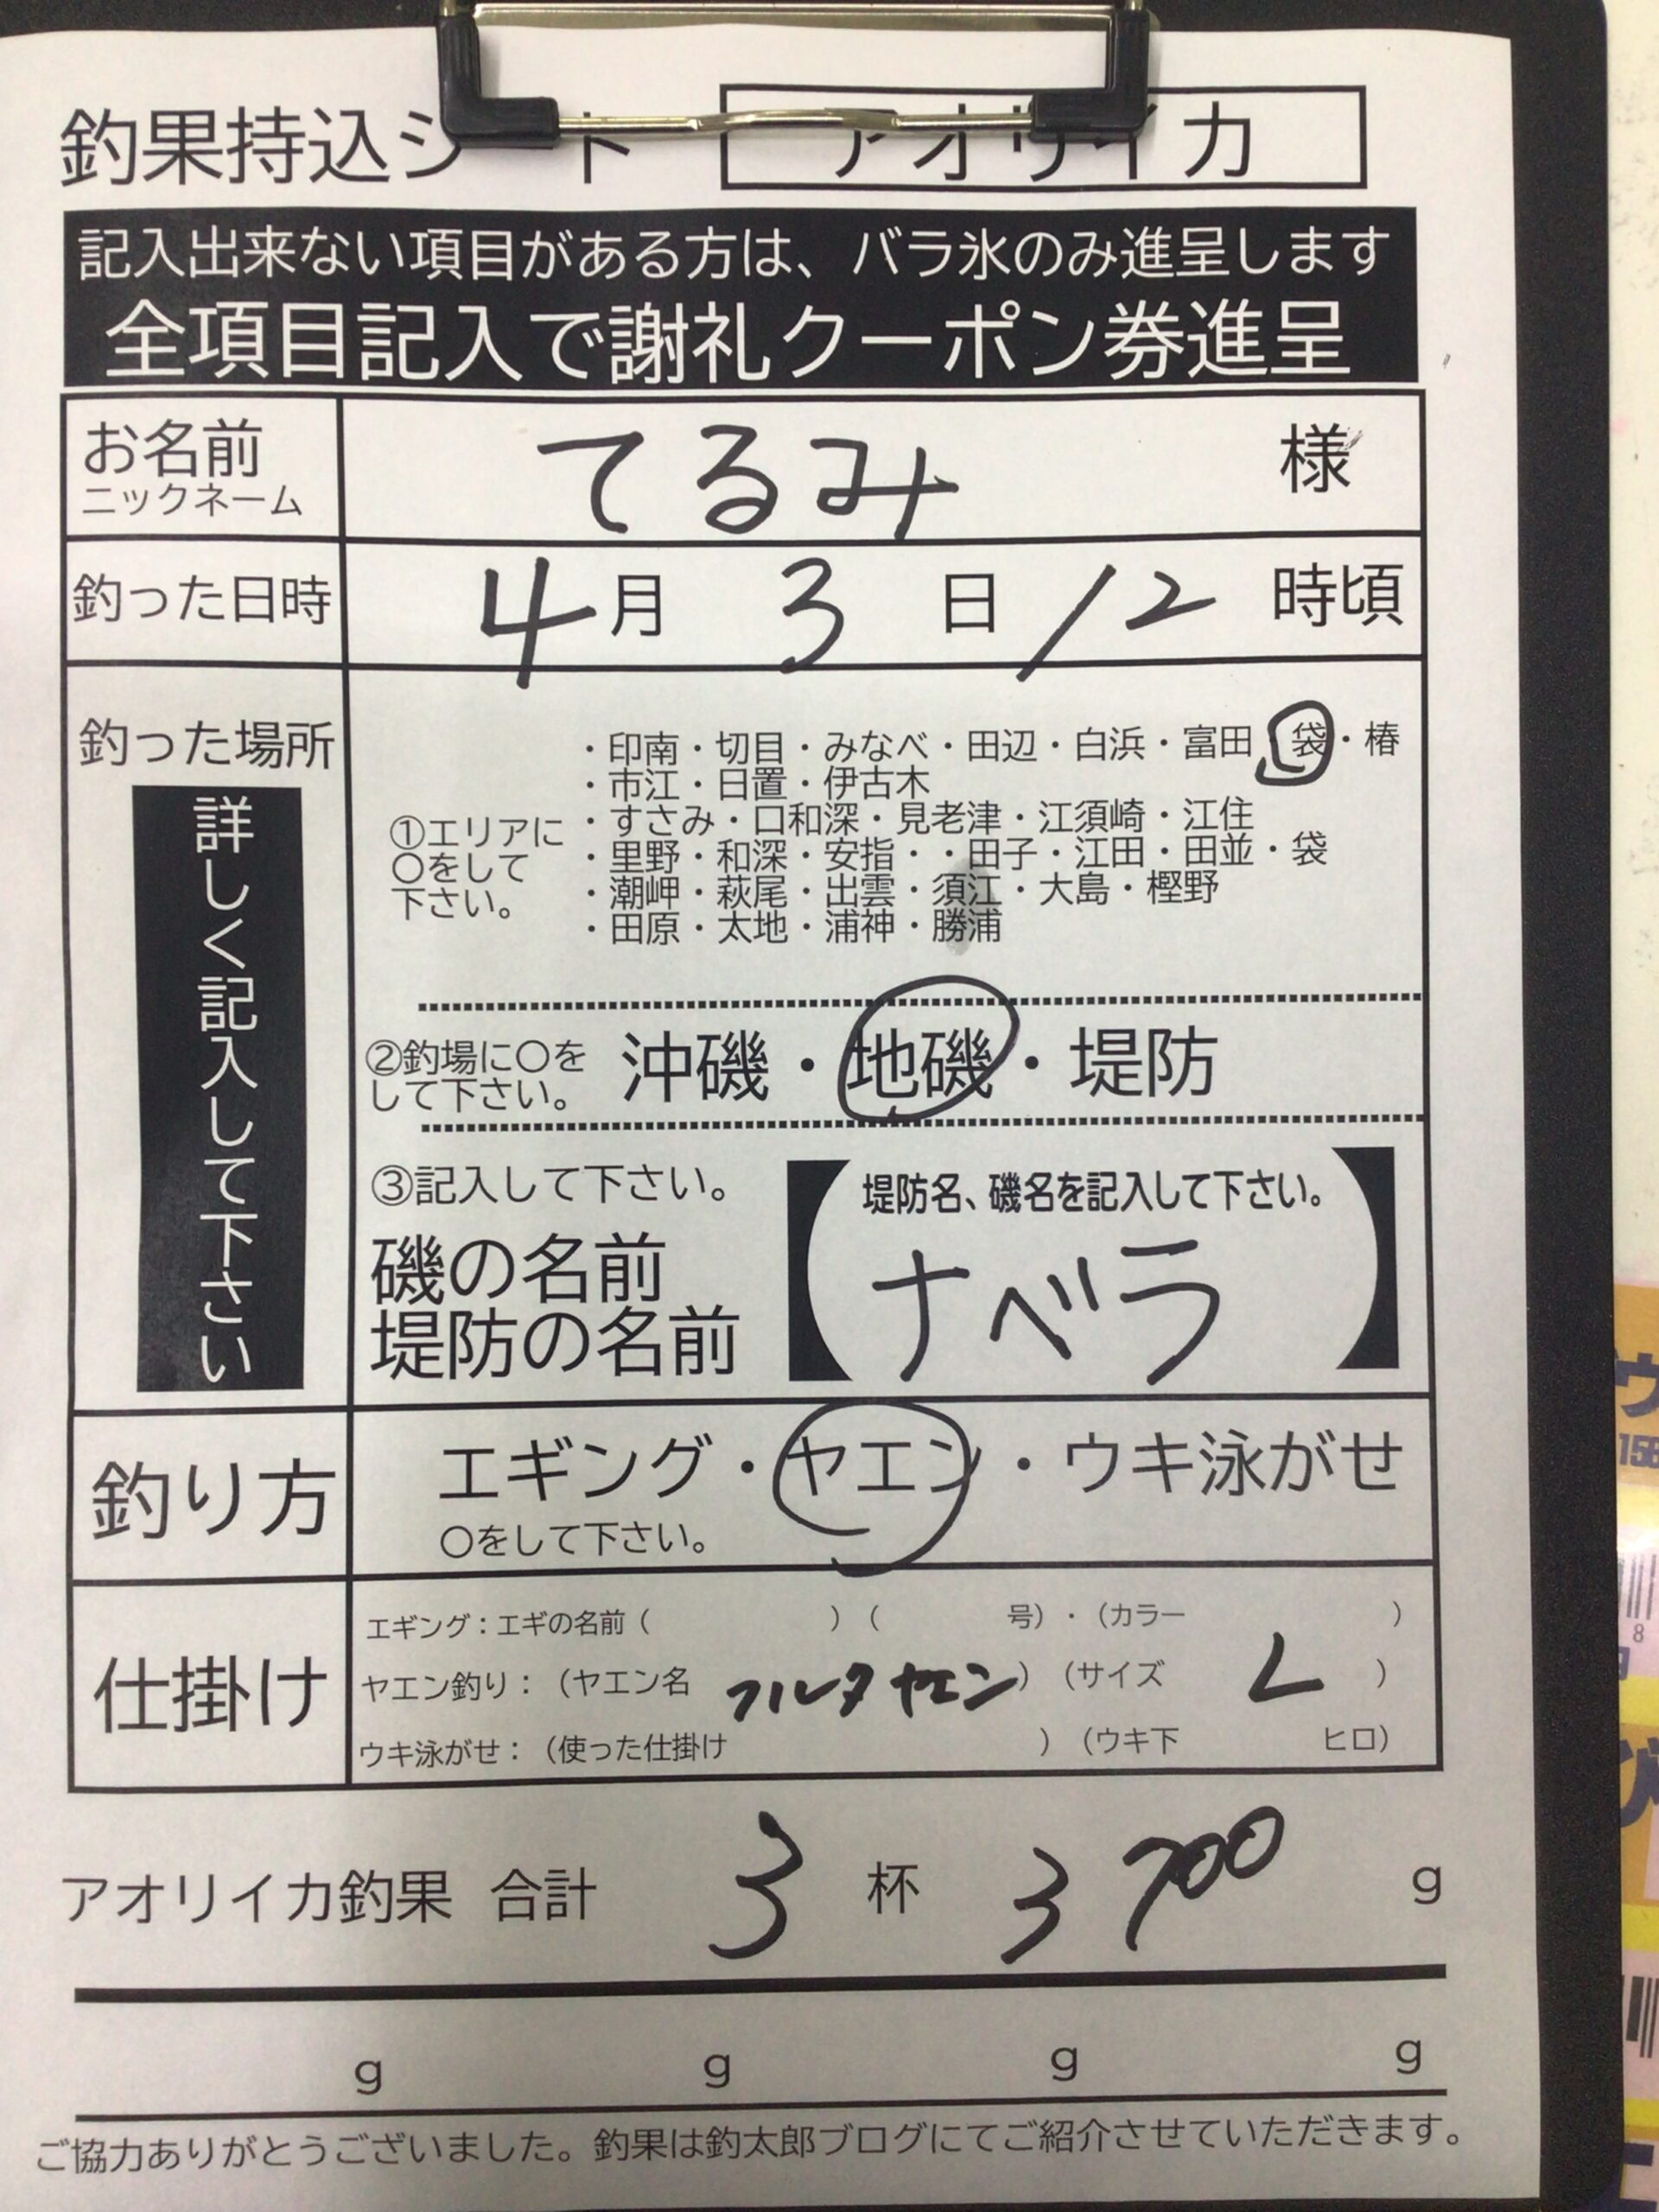 釣果持込シート アオリイカ
記入出来ない項目がある方は、バラ氷のみ進呈します
全項目記入で謝礼クーポン券進呈
お名前 てるみ 様
ニックネーム
釣った日時 4月 3日 12時頃
釣った場所
詳しく記入して下さい
①エリアに
〇をして
下さい。
・印南・切目・みなべ・田辺・白浜・富田・袋・椿
・市江・日置・伊古木
・すさみ・口和深・見老津・江須崎・江住
・里野・和深・安指・・田子・江田・田並・袋
・潮岬・萩尾・出雲・須江・大島・樫野
・田原・太地・浦神・勝浦
②釣場に〇を
して下さい。
沖磯・地磯・堤防
③記入して下さい。
磯の名前
堤防の名前
【堤防名、磯名を記入して下さい。
ナベラ】
釣り方 エギング・ヤエン・ウキ泳がせ
〇をして下さい。
仕掛け
エギング：エギの名前（ ）（ 号）・（カラー ）
ヤエン釣り：（ヤエン名 フルタヤエン）（サイズ L ）
ウキ泳がせ：（使った仕掛け ）（ウキ下 ヒロ）
アオリイカ釣果 合計 3杯 3700g
g g g g
ご協力ありがとうございました。釣果は釣太郎ブログにてご紹介させていただきます。